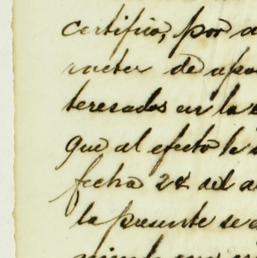 certifico, por a
racter de apo
teresados en la
que al efecto le
fecha 28 del a
la presente se